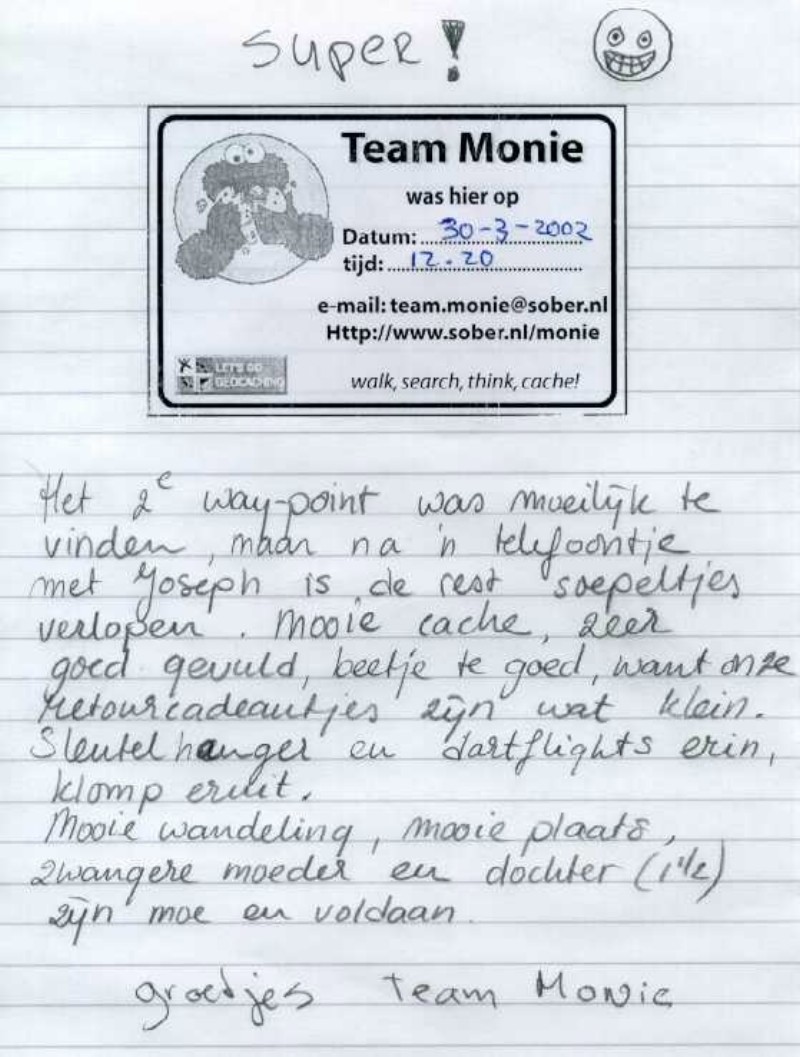 Super!
Team Monie
was hier op
Datum: 30-3-2002
tijd: 12.20
e-mail: team.monie@sober.nl
Http://www.sober.nl/monie
LET'S GO
GEOCACHING
walk, search, think, cache!
Het 2e way-point was moeilijk te
vinden, maar na 'n telefoontje
met Joseph is de rest soepeltjes
verlopen. Mooie cache, zeer
goed gevuld, beetje te goed, want onze
retourcadeautjes zijn wat klein.
Sleutelhanger en dartflights erin,
klomp eruit.
Mooie wandeling, mooie plaats,
zwangere moeder en dochter (1 1/2)
zijn moe en voldaan.
groetjes Team Monie